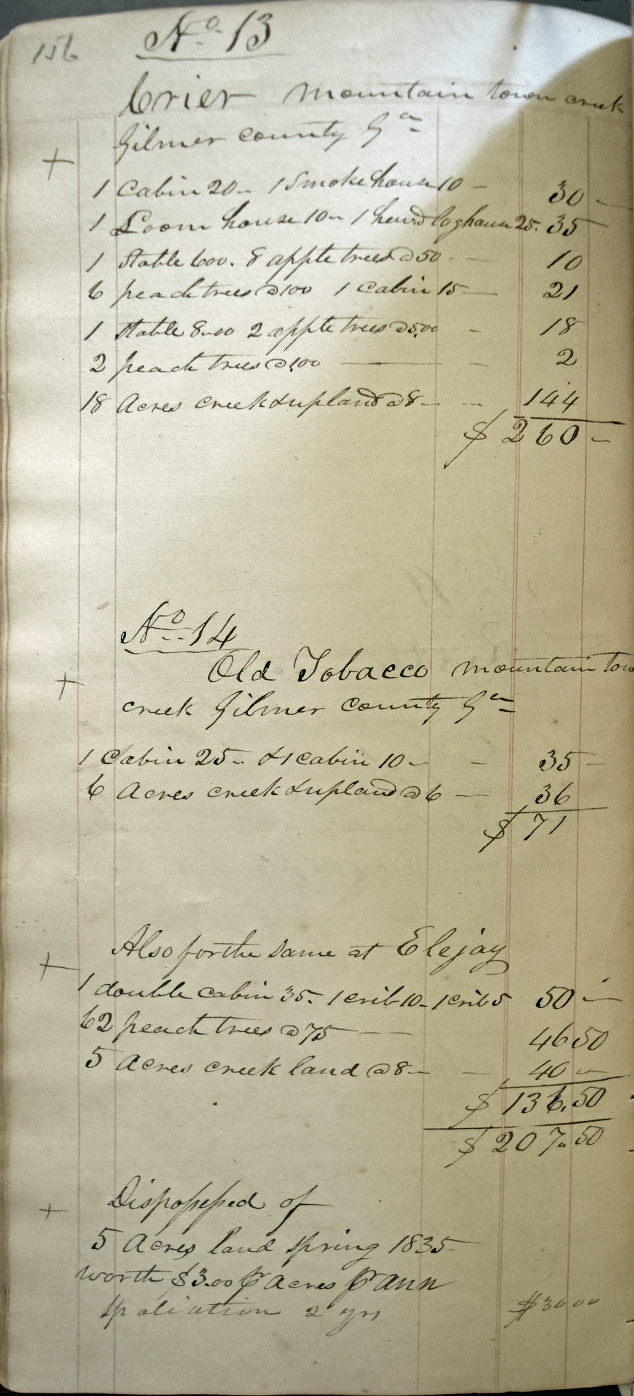 156
No. 13
Crier mountain town creek
Gilmer county Ga
+
1 Cabin 20- 1 Smoke house 10 - 30 -
1 Loom house 10- 1 hewd log house 25. 35
1 Stable 600. 8 apple trees @ 50 - 10
6 peach trees @ 100 1 cabin 15 - 21
1 Stable 8.00 2 apple trees @ 5.00 - 18
2 peach trees @ 100 - 2
18 Acres creek & upland @ 8- - 144
$ 260 -
No. 14
+
Old Tobacco mountain tow
creek Gilmer county Ga
1 Cabin 25- & 1 cabin 10- - 35 -
6 Acres creek & upland @ 6 - 36
$ 71
+
Also for the same at Elejay
1 double cabin 35. 1 crib 10- 1 crib 5 50 -
62 peach trees @ 75 - - 46 50
5 Acres creek land @ 8- - 40 -
$ 136.50
$ 207.50
+
Dispossessed of
5 Acres land Spring 1835
worth $3.00 P Acres P ann
Spoliation 2 yrs $30 00